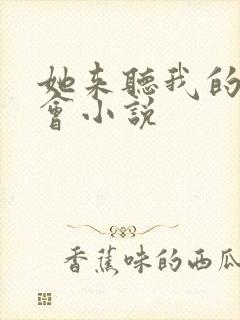 她来聽我的
會小説
香蕉味的西瓜